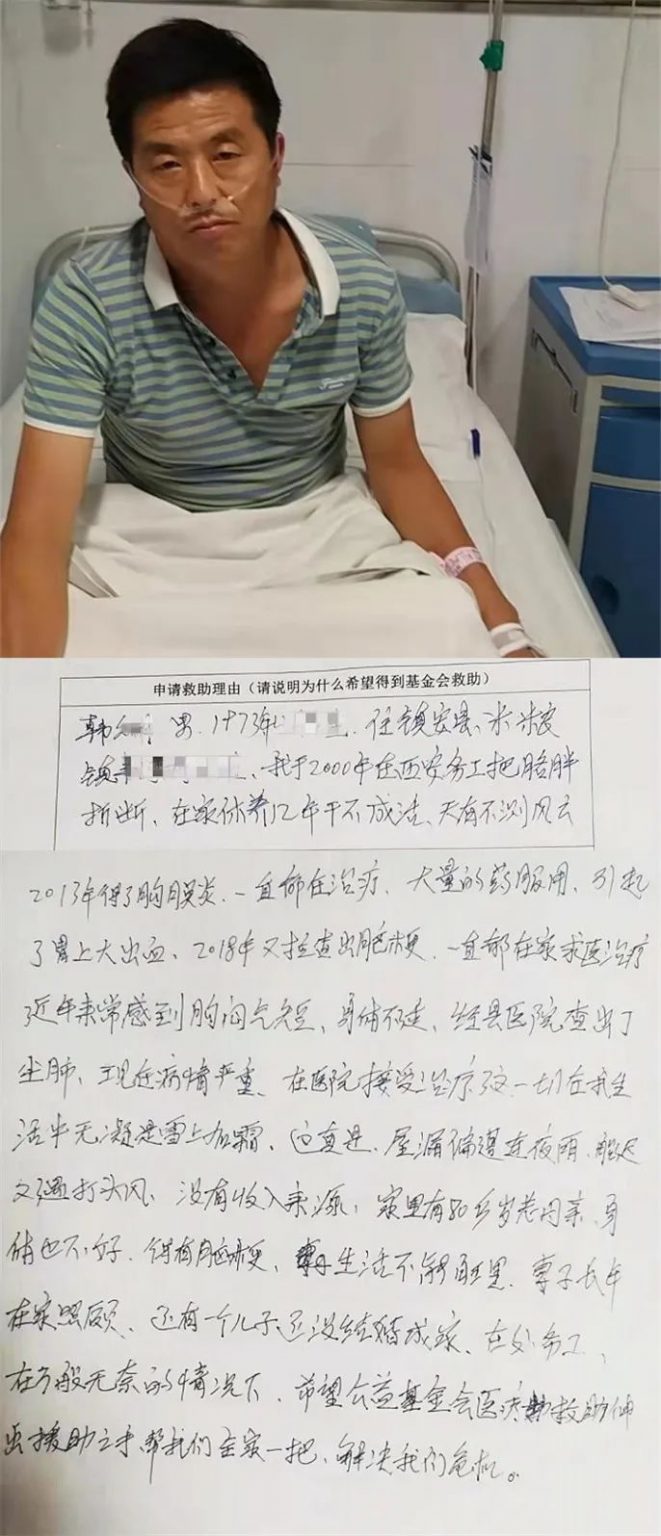 申请救助理由（请说明为什么希望得到基金会救助）
韩 男.1973年 住镇安县.米粮
镇 、我于2000年在西安务工把胳胖
折断、在家休养12年干不成活、天有不测风云
2013年得了胸膜炎.一直都在治疗、大量的药服用、引起
了胃上大出血、2018年又检查出脑梗.一直都在家求医治疗
近年来常感到胸闷气短、身体不适、经县医院查出了
尘肺、现近病情严重、在医院接受治疗这一切在我生
活中无凝是雪上加霜、这真是、屋漏偏遭连夜雨、船迟
又遇打头风、没有收入来源、家里有80多岁老母亲、身
体也不好.得有脑梗、生活不能自理.妻子长年
在家照顾、还有一个儿子还没结婚成家、在外务工、
在万般无奈的情况下、希望公益基金会医疗救助伸
出援助之手帮我们全家一把、解决我们危机。